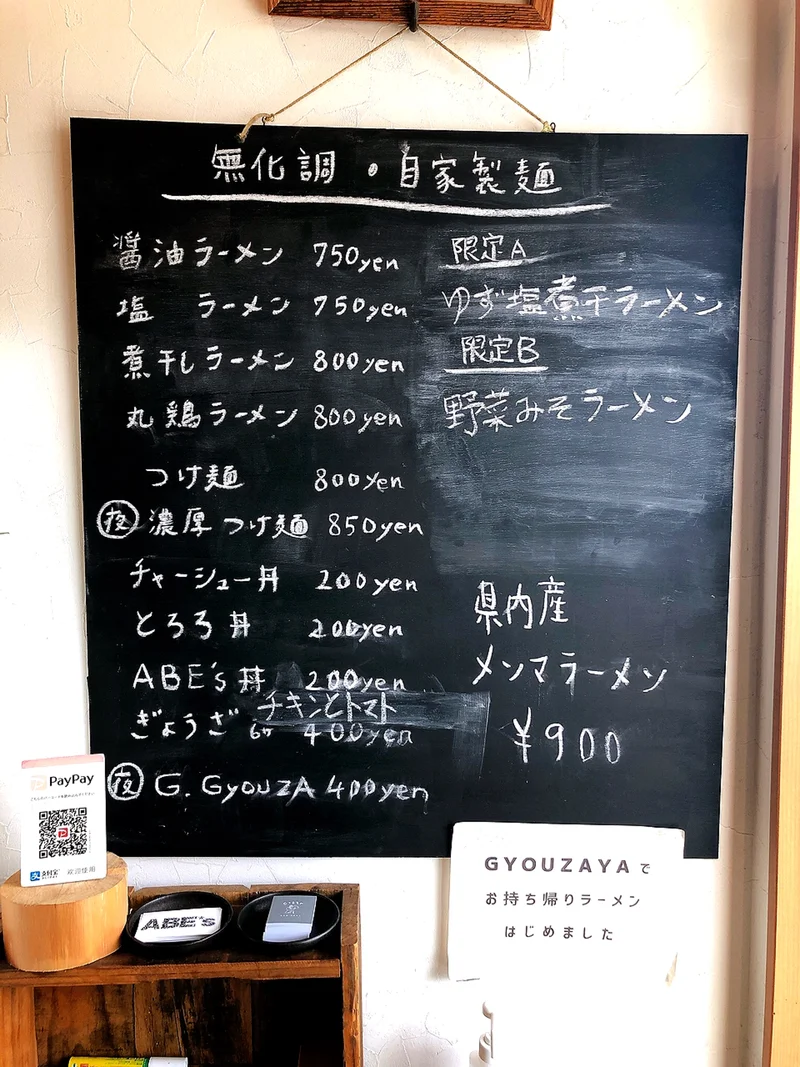 無化調・自家製麺
醤油ラーメン 750yen
塩 ラーメン 750yen
煮干しラーメン 800yen
丸鶏ラーメン 800yen
つけ麺 800yen
夜 濃厚つけ麺 850yen
チャーシュー丼 200yen
とろろ丼 200yen
ABE's丼 200yen
チキンとトマト
ぎょうざ 6ヶ 400yen
夜 G. GyouzA 400yen
限定A
ゆず塩煮干ラーメン
限定B
野菜みそラーメン
県内産
メンマラーメン
¥900
PayPay
支付宝 欢迎使用
ABE's
GYOUZAYAで
お持ち帰りラーメン
はじめました